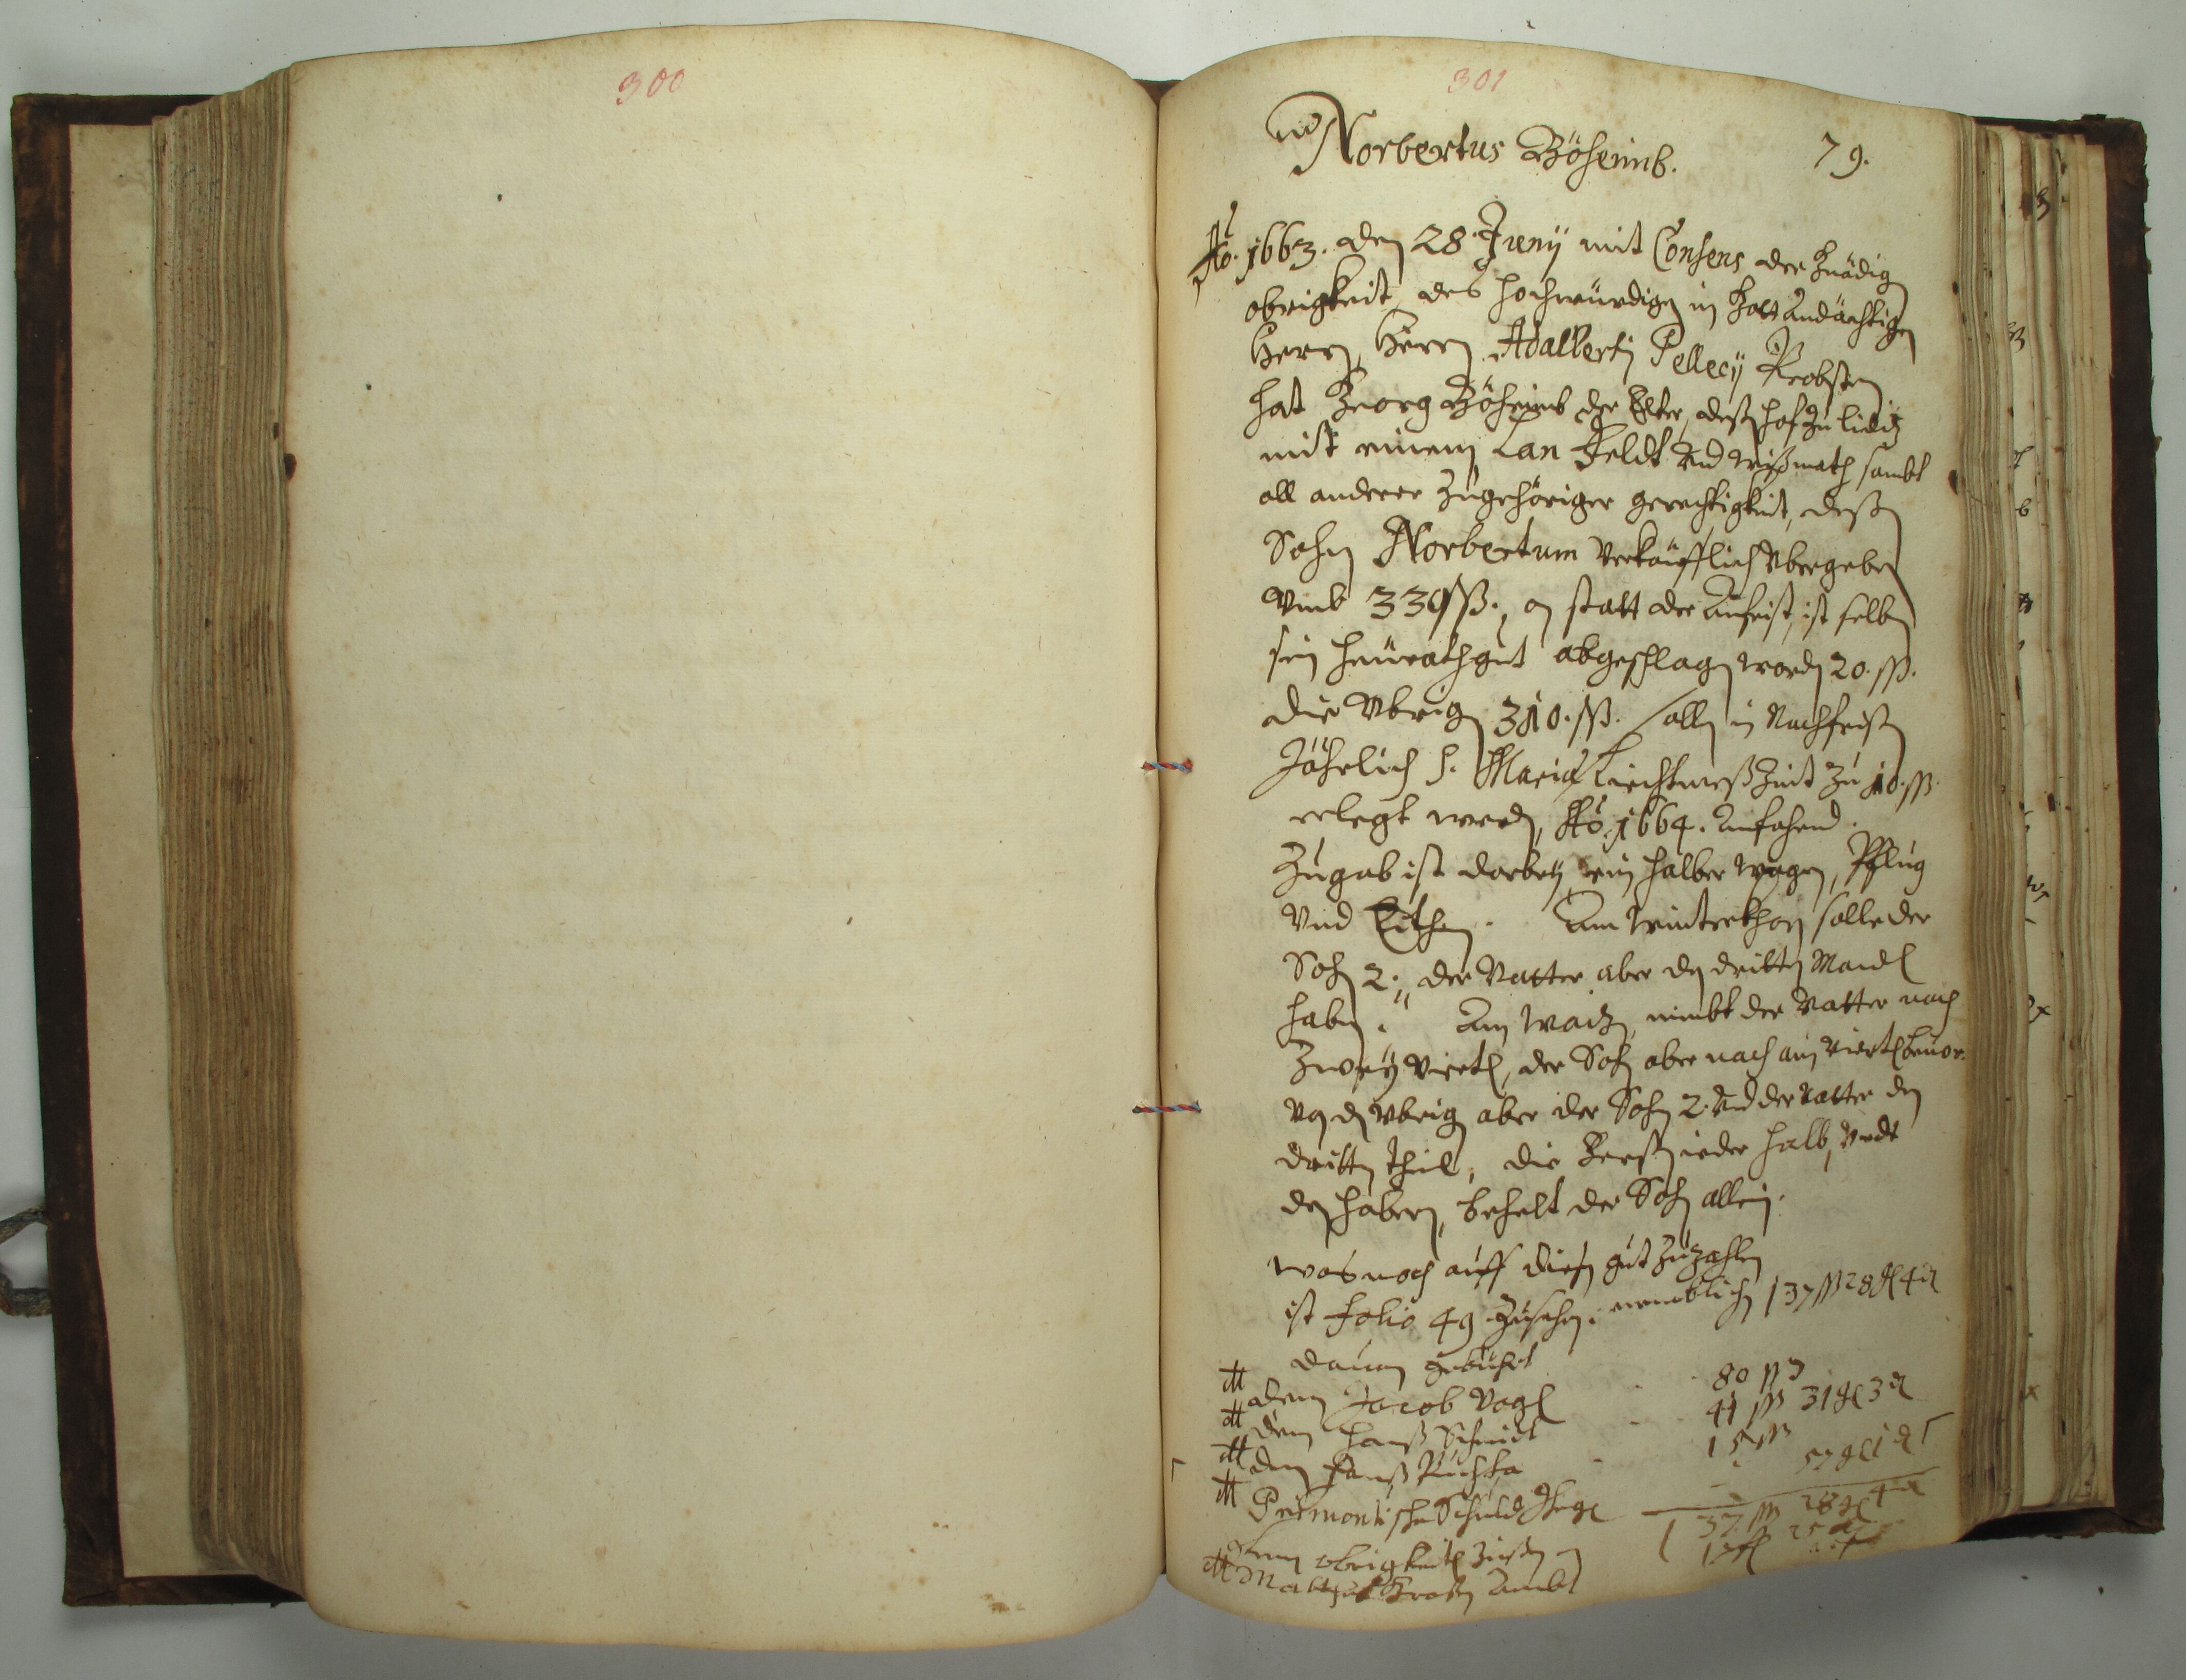 300
301
Norbertus Böheimb. 79.
Ao. 1663. den 28. Juny mit Consens der Gnädig
obrigkeit, des hochwürdigen in Gott andächtigen
Herrn, Herrn Adalberti Pellecy Probsten
hat Georg Böheimb der Elter, dessen hof zu
mit einem Lan Feldt und wißmath sambt
all anderer zugehöriger gerechtigkeit, dessen
Sohn Norbertum verkäufflich übergeben
Umb 330 ß., an statt der Anfrist, ist selben
sein heürathgut abgeschlagen worden 20. ß.
die übrigen 310. ß. sollen in Nachfristen
Jährlich S. Mariae Liechtmeß Zeit zu 10. ß.
erlegt werden, Ao. 1664. Anfahend.
Zugab ist darbey ein halber wagen, Pflug
Und Eithen. Am winterkhorn solle der
Sohn 2., der Vatter aber den dritten Mandl
haben. Am waitz nimbt der Vatter nach
Zwey viertl, der Sohn aber nach ein viertl beuor.
Von dem übrigen aber der Sohn 2. und der Vatter den
dritten theil, die Gersten ieder halb, Undt
den habern, behelt der Sohn allein.
was noch auff diesen gut zuzahlen
ist folio 49 zusehen. nemblich 137 ß 28 4
dauon gebührt
dem Jacob Vogl 80 ß
dem hanß Schmidt 41 ß 31 3
dem hanß 15 ß
Schuld 57 1
137 ß 28 4
obrigkeit